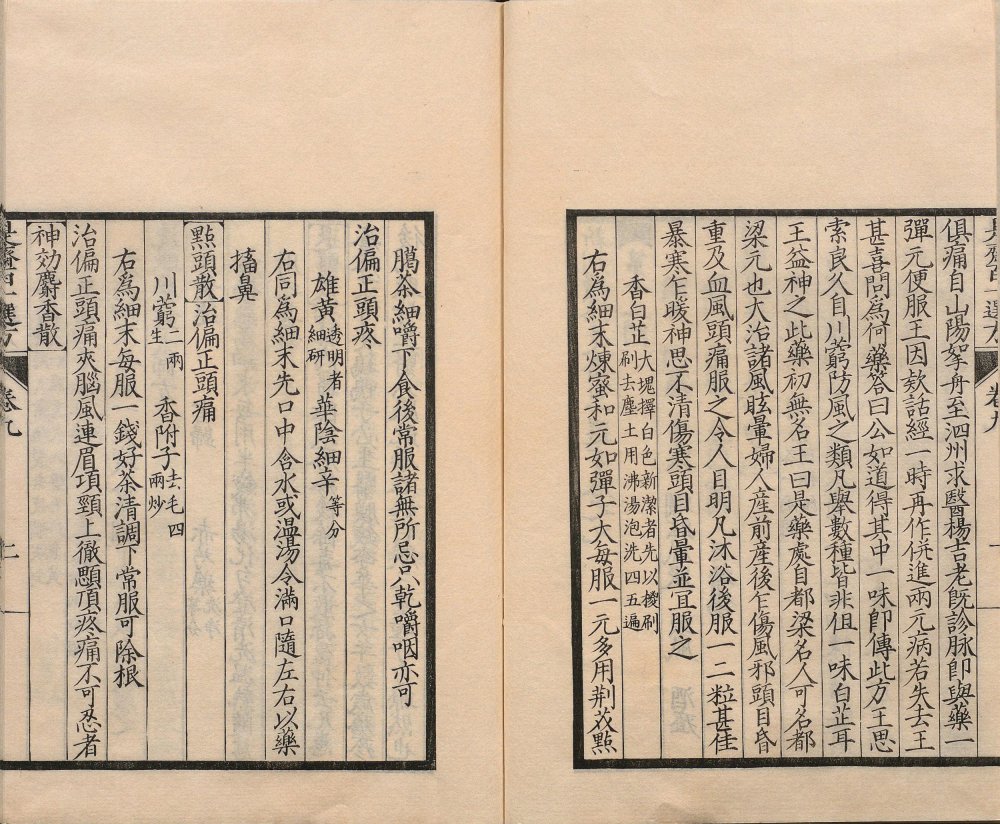 俱痛自山陽拏舟至泗州求醫楊吉老旣診脉卽與藥一
彈元便服王因欵話經一時再作併進兩元病若失去王
甚喜問爲何藥答曰公如道得其中一味卽傳此方王思
索良久自川藭防風之類凡舉數種皆非但一味白芷耳
王益神之此藥初無名王曰是藥處自都梁名人可名都
梁元也大治諸風眩暈婦人産前産後乍傷風邪頭目昏
重及血風頭痛服之令人目明凡沐浴後服一二粒甚佳
暴寒乍暖神思不清傷寒頭目昏暈並宜服之
香白芷大塊擇白色新潔者先以椶刷
刷去塵土用沸湯泡洗四五遍
右爲細末煉蜜和元如彈子大每服一元多用荆芥㸃
臈茶細嚼下食後常服諸無所忌只乾嚼咽亦可
治偏正頭疼
雄黄透明者
細研 華陰細辛等分
右同爲細末先口中含水或溫湯令滿口隨左右以藥
搐鼻
㸃頭散 治偏正頭痛
川藭二兩
生 香附子去毛四
兩炒
右為細末每服一錢好茶清調下常服可除根
治偏正頭痛夾腦風連眉項頸上徹顋頂疼痛不可忍者
神効麝香散
卷九